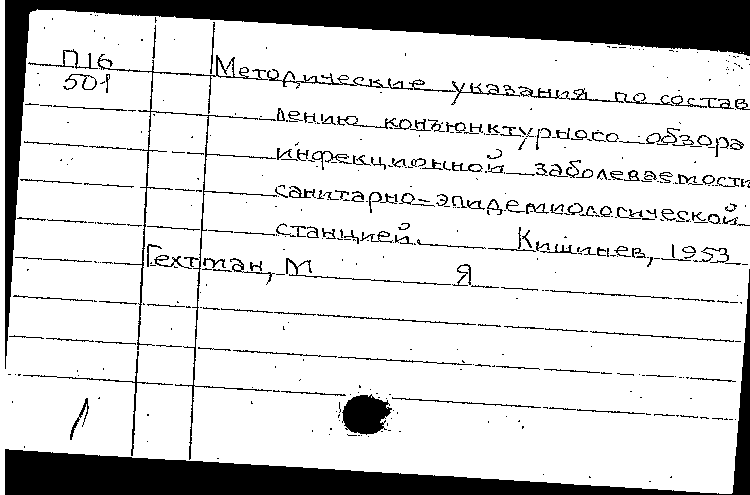 П16
501
Методические указания по состав
лению конъюнктурного обзора
инфекционной заболеваемости
санитарно-эпидемиологической
станцией. Кишинев, 1953
Гехтман, М Я